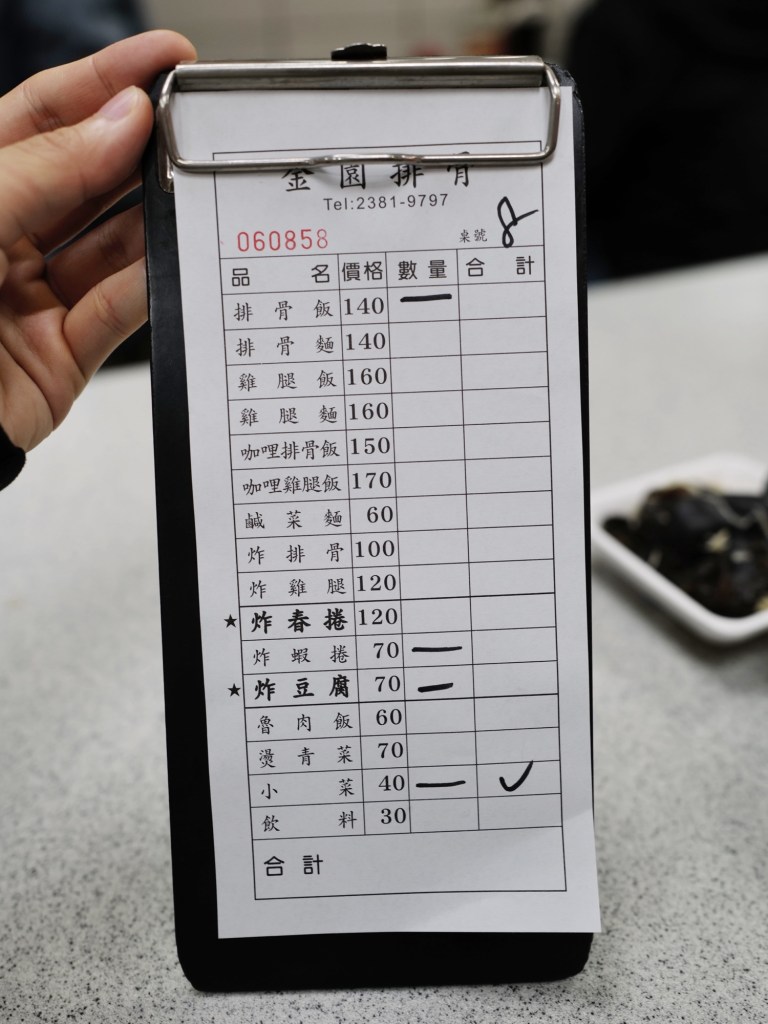 金園排骨
Tel:2381-9797
060858 桌號 8
品名 價格 數量 合計
排骨飯 140 一
排骨麵 140
雞腿飯 160
雞腿麵 160
咖哩排骨飯 150
咖哩雞腿飯 170
鹹菜麵 60
炸排骨 100
炸雞腿 120
★炸春捲 120
炸蝦捲 70 一
★炸豆腐 70 一
魯肉飯 60
燙青菜 70
小菜 40 一 ✓
飲料 30
合計